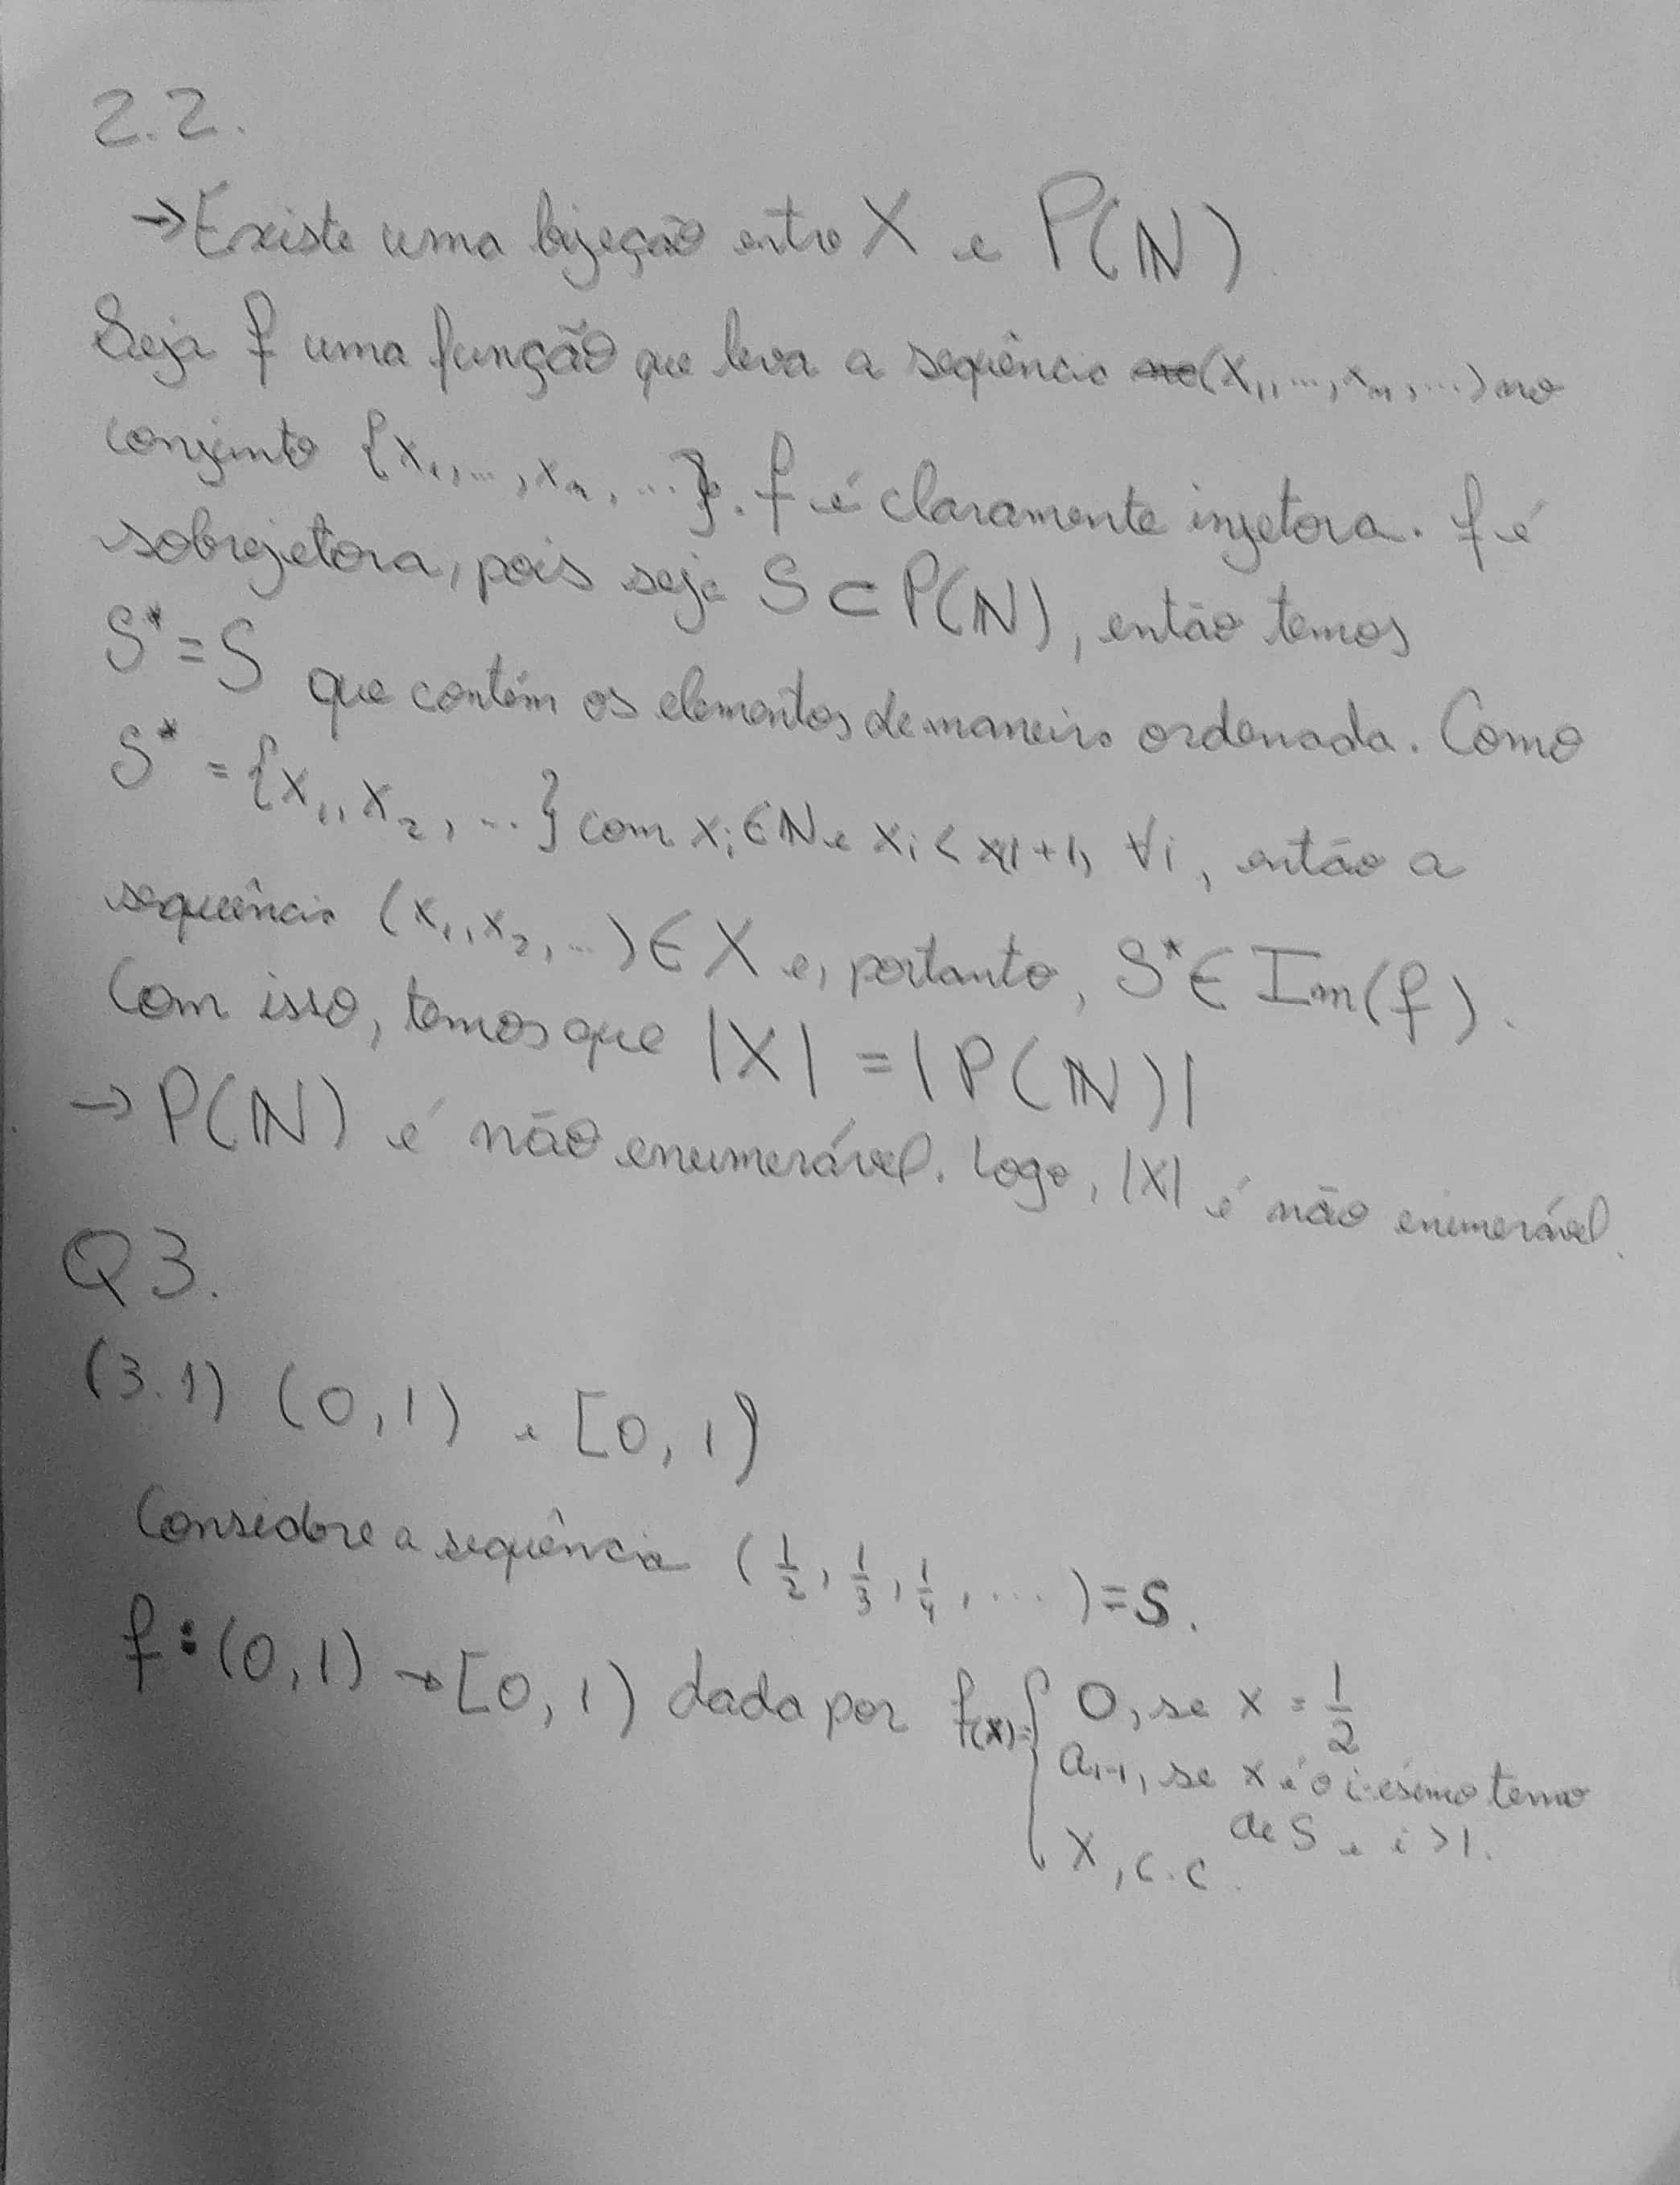 2.2.
→ Existe uma bijeção entre X e P(ℕ)
Seja f uma função que leva a sequência (x₁, ..., xₙ, ...) no
conjunto {x₁, ..., xₙ, ...}. f é claramente injetora. f é
sobrejetora, pois seja S ⊂ P(ℕ), então temos
S* = S que contém os elementos de maneira ordenada. Como
S* = {x₁, x₂, ...} com xᵢ ∈ ℕ e xᵢ < xᵢ₊₁, ∀i, então a
sequência (x₁, x₂, ...) ∈ X e, portanto, S* ∈ Im(f).
Com isso, temos que |X| = |P(ℕ)|
→ P(ℕ) é não enumerável. Logo, |X| é não enumerável.
Q3.
(3.1) (0,1) e [0,1)
Considere a sequência (1/2, 1/3, 1/4, ...) = S.
f: (0,1) → [0,1) dada por f(x) = { 0, se x = 1/2
aᵢ₋₁, se x é o i-ésimo termo
de S e i > 1.
x, c.c.